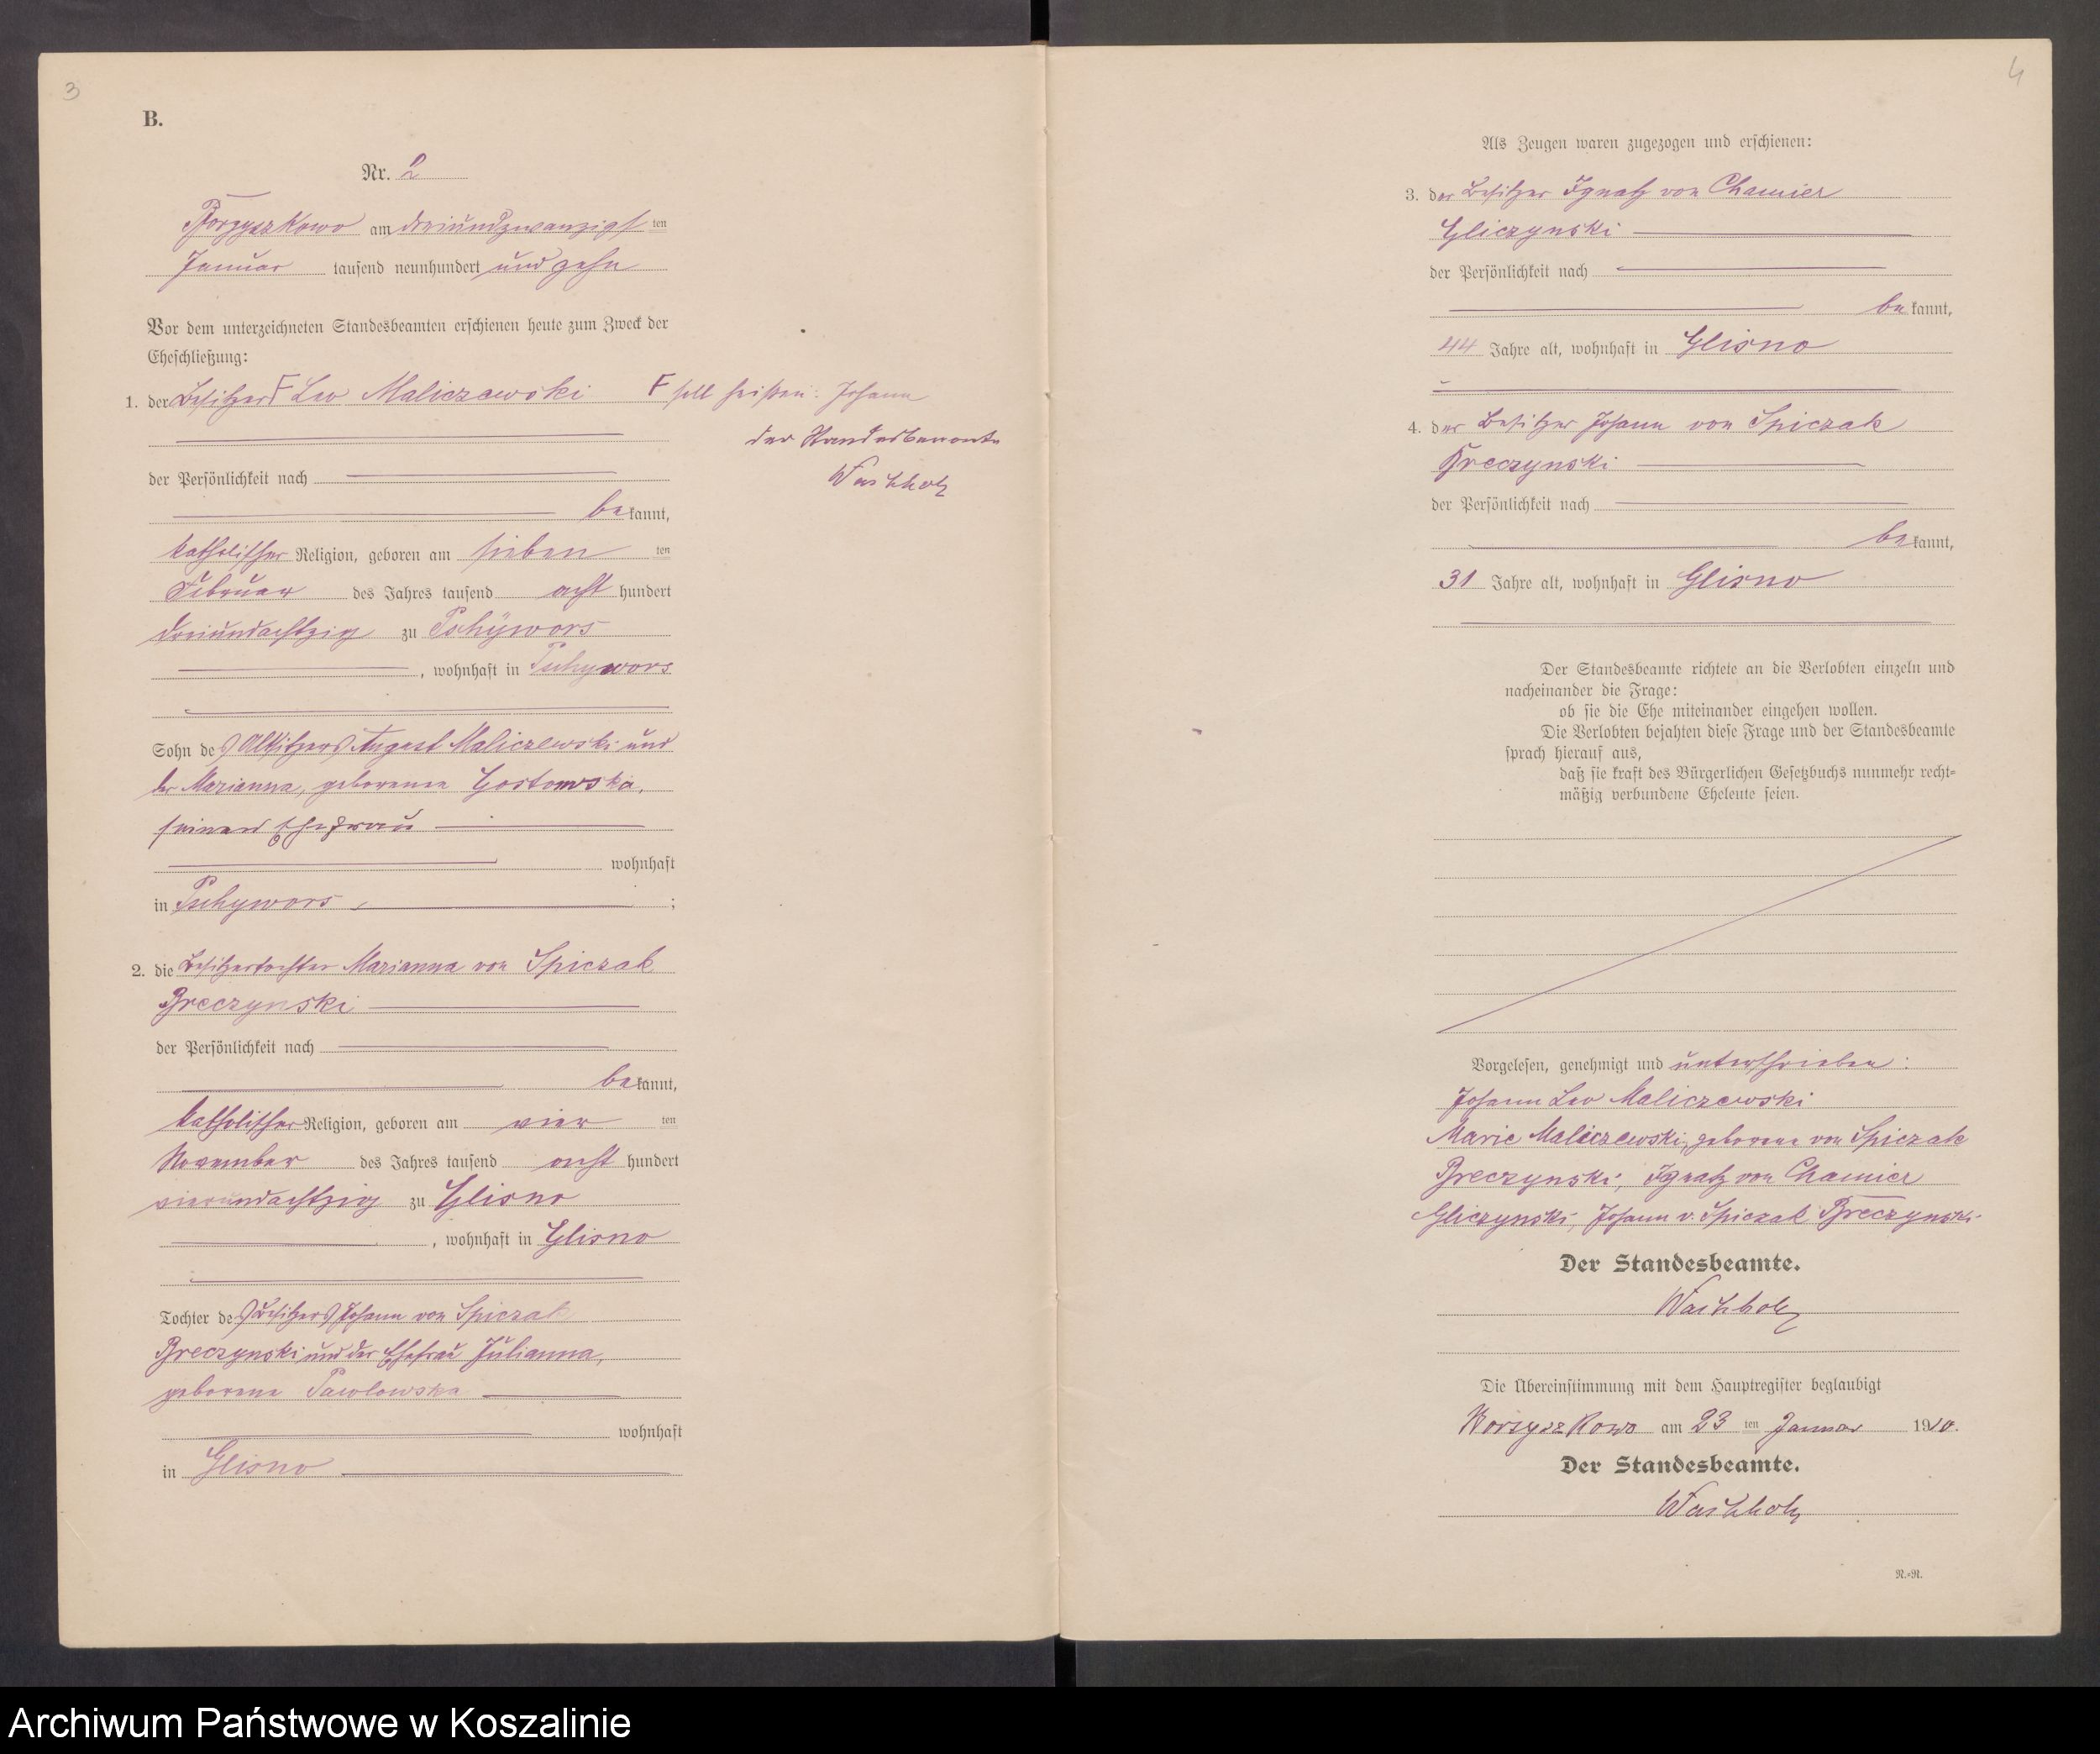 3
B.
Nr. 2
Borzyszkowo am dreiundzwanzigsten
Januar tausend neunhundert und zehn
Vor dem unterzeichneten Standesbeamten erschienen heute zum Zweck der
Eheschließung:
1. der Besitzer F Leo Maliczewski
F soll heißen: Johann
der Standesbeamte
Waschholz
der Persönlichkeit nach
bekannt,
katholischer Religion, geboren am sieben ten
Februar des Jahres tausend acht hundert
dreiundachtzig zu Pschywors
, wohnhaft in Pschywors
Sohn des Altsitzers August Maliczewski und
der Marianna, geborenen Gostomska,
seiner Ehefrau
wohnhaft
in Pschywors, ;
2. die Besitzertochter Marianna von Spiczak
Brzeczynski
der Persönlichkeit nach
bekannt,
katholischer Religion, geboren am vier ten
November des Jahres tausend acht hundert
vierundachtzig zu Glisno
, wohnhaft in Glisno
Tochter des Besitzers Johann von Spiczak
Breczynski und der Ehefrau Julianna,
geborene Pawlowska
wohnhaft
in Glisno
4
Als Zeugen waren zugezogen und erschienen:
3. der Besitzer Ignatz von Chamier
Gliczynski
der Persönlichkeit nach
bekannt,
44 Jahre alt, wohnhaft in Glisno
4. der Besitzer Johann von Spiczak
Breczynski
der Persönlichkeit nach
bekannt,
31 Jahre alt, wohnhaft in Glisno
Der Standesbeamte richtete an die Verlobten einzeln und
nacheinander die Frage:
ob sie die Ehe miteinander eingehen wollen.
Die Verlobten bejahten diese Frage und der Standesbeamte
sprach hierauf aus,
daß sie kraft des Bürgerlichen Gesetzbuchs nunmehr recht-
mäßig verbundene Eheleute seien.
Vorgelesen, genehmigt und unterschrieben:
Johann Leo Maliczewski
Marie Maliczewski, geborene von Spiczak
Breczynski, Ignatz von Chamier
Gliczynski, Johann v. Spiczak Breczynski
Der Standesbeamte.
Waschholz
Die Übereinstimmung mit dem Hauptregister beglaubigt
Borzyszkowo am 23 ten Januar 1910.
Der Standesbeamte.
Waschholz
N.-N.
Archiwum Państwowe w Koszalinie